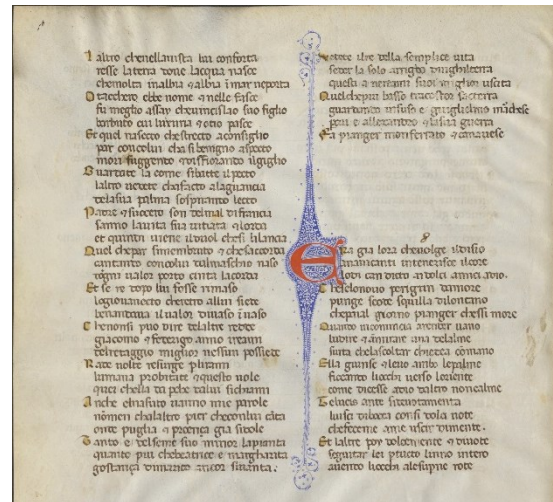 Laltro chenellauista lui conforta
resse laterra doue lacqua nasce
chemolta inalbia & albia inmar neporta
Otacchero ebbe nome & nelle fasce
fu meglo assay cheuincislao suo figlio
barbuto cui luxuria & otio pasce
Et quel nasecto chestrecto aconsiglio
par concolui cha si benigno aspecto
mori fuggendo & disfiorando ilgiglio
Guardate la come sibatte ilpecto
laltro uedete chafacto alaguancia
delasua palma sospirando lecto
Padre & suocero son delmal difrancia
sanno lauita sua uitiata & lorda
et quindi uiene ilduol chesi lilancia
Quel chepar simembruto & chesaccorda
cantando concolui dalmaschio naso
dogni ualor porto cinta lacorda
Et se re dopo lui fosse rimaso
logiouanecto cheretro allui siede
beneandaua il ualor diuaso inuaso
Chenonsi puo dire delaltre rede
giacomo & federigo anno ireami
delretaggio miglior nessun possiede
Rade uolte resurge per li rami
lumana probitate & questo uole
quei chella da perche dalui sichiami
Anche elnasuto uanno mie parole
nomen chalaltro pier checonlui canta
onde puglia & proenca gia sidole
Tanto e delseme suo minor lapianta
quanto piu chebeatrice & margharita
gostança dimarito ancor siuanta.
Vedete ilre della semplice uita
seder la solo arrigo dinghilterra
questi a nerami suoi miglior uscita
Quel chepiu basso tracostor saterra
guardando insuso e guiglielmo marchese
per cui & allexandro & lasua guerra
Fa pianger monferrato & canauese
Era gia lora cheuolge ildisio
anauicanti intenerisce ilcore
lodi can dicto adolci amici adio.
Et chelonouo peregrin damore
punge sode squilla dilontano
chepaia il giorno pianger chessi more
Quando incomincia arender uano
ludire & amirare una delalme
surta chelascoltar chiedea comano
Ella giunse & leuo ambo lepalme
ficcando liocchi uerso loriente
come dicesse adio daltro noncalme
Te lucis ante sideuotamente
luisci dibocca consi dolci note
chefeceme ame uscir dimente.
Et laltre poi dolcemente & diuote
seguitar lei pertucto linno intero
auendo liocchi alesuperne rote